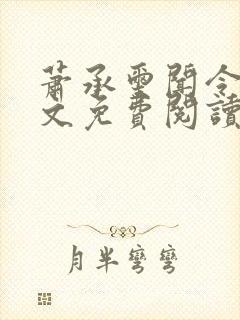 蕭承墨聞令
文免費閱讀
月半彎彎